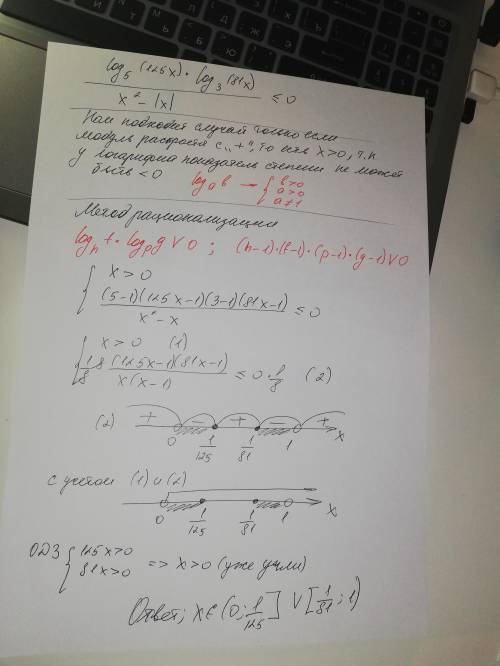 log₅(125x) · log₃(81x)
x² - |x| ≤ 0
Нам подходит случай только если
модуль раскроется с "+", то есть x>0, т.к
у логарифма показатель степени не может
быть <0
logₐb → { b>0
a>0
a≠1
Метод рационализации
logₕf · logₚg V 0 ; (h-1)·(f-1)·(p-1)·(g-1) V 0
{ x>0
(5-1)(125x-1)(3-1)(81x-1)
x² - x ≤ 0
{ x>0 (1)
1/8 · 8 (125x-1)(81x-1) / x(x-1) ≤ 0 · 1/8 (2)
(2) + - + - +
0 1/125 1/81 1 x
с учетом (1) и (2)
0 1/125 1/81 1 x
ОДЗ { 125x>0
81x>0 => x>0 (уже учли)
Ответ; x∈(0; 1/125] V [1/81; 1)